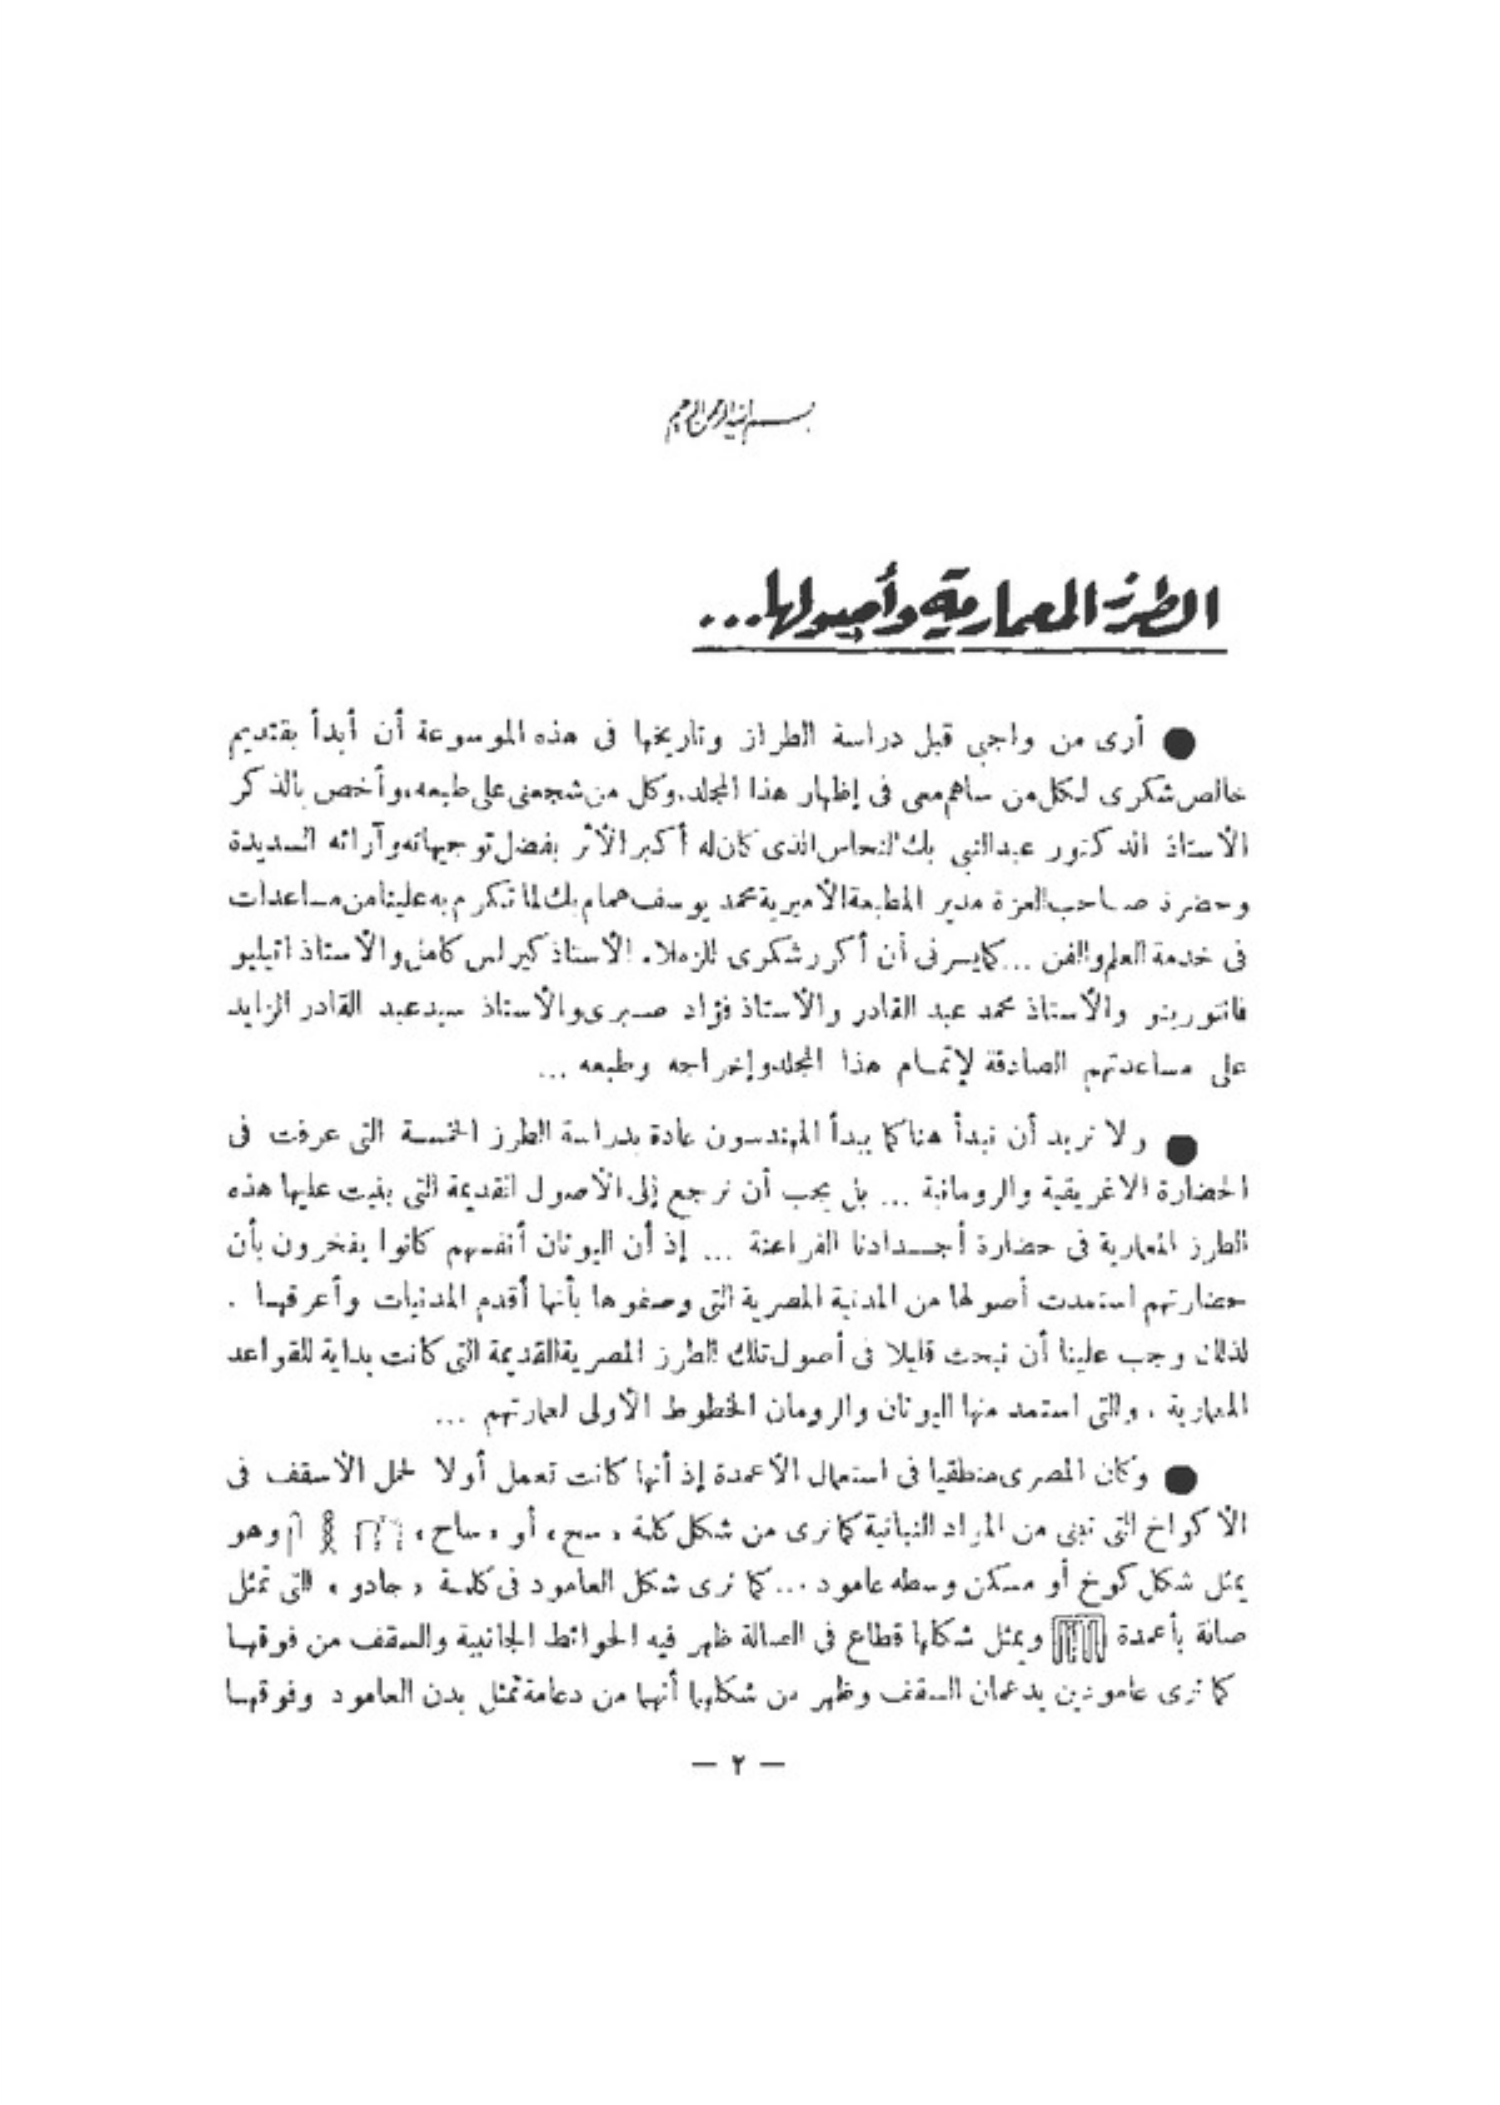 بسم الله الرحمن الرحيم
الطرز المعمارية وأصولها...
● أرى من واجبي قبل دراسة الطراز وتاريخها فى هذه الموسوعة أن أبدأ بتقديم
خالص شكرى لكل من ساهم معى فى إظهار هذا المجلد، وكل من شجعنى على طبعه، وأخص بالذكر
الأستاذ الدكتور عبدالنبي بك النحاس الذى كان له أكبر الأثر بفضل توجيهاته وآرائه السديدة
وحضرة صاحب العزة مدير المطبعة الأميرية محمد يوسف همام بك لما تكرم به علينا من مساعدات
فى خدمة العلم والفن ... كما يسرنى أن أكرر شكرى للزملاء الأستاذ كيرلس كامل والأستاذ اتيليو
فانتورينو والأستاذ محمد عبد القادر والأستاذ فؤاد صبرى والأستاذ سيد عبد القادر الزايد
على مساعدتهم الصادقة لإتمام هذا المجلد وإخراجه وطبعه ...
● ولا نريد أن نبدأ هنا كما يبدأ المهندسون عادة بدراسة الطرز الخمسة التى عرفت فى
الحضارة الاغريقية والرومانية ... بل يجب أن نرجع إلى الأصول القديمة التى بنيت عليها هذه
الطرز المعمارية فى حضارة أجدادنا الفراعنة ... إذ أن اليونان أنفسهم كانوا يفخرون بأن
حضارتهم استمدت أصولها من المدنية المصرية التى وصفوها بأنها أقدم المدنيات وأعرقها .
لذلك وجب علينا أن نبحث قليلا فى أصول تلك الطرز المصرية القديمة التى كانت بداية للقواعد
المعمارية ، والتى استمد منها اليونان والرومان الخطوط الأولى لعمارتهم ...
● وكان المصرى منطقيا فى استعمال الأعمدة إذ أنها كانت تعمل أولا لحمل الأسقف فى
الأكواخ التى تبنى من المواد النباتية كما نرى من شكل كلمة « سح » أو « ساح » وهو
يمثل شكل كوخ أو مسكن وسطه عامود ... كما نرى شكل العامود فى كلمة « جادو » التى تمثل
صالة بأعمدة ويمثل شكلها قطاع فى الصالة ظهر فيه الحوائط الجانبية والسقف من فوقها
كما نرى عامودين يدعمان السقف وظهر من شكلهما أنهما من دعامة تمثل بدن العامود وفوقها
— ٢ —